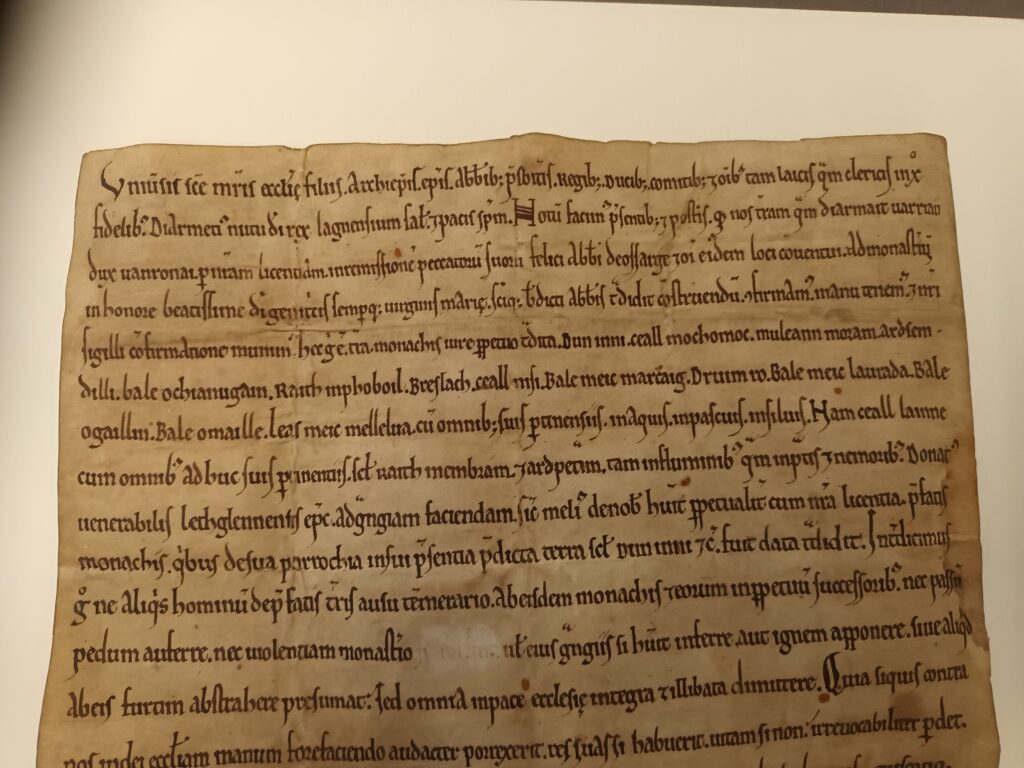 Uniusis sc̄e mr̄is eccl̄ię filiis. Archiep̄is. ep̄is. Abb̄ib; p̄sbit̄is. Regib;. Ducib;. comitib; ⁊ oīb; tam laicis q̄m clericis in xº
fidelib;. Diarmeti᾽ nutu di͞ rex lagnensium sal̄. ⁊ pacis sp̄m. Notū facim᾽ p̄sentib; ⁊ post̄is. nos tram q̄m diarmait
dux uanronai. p nr̄am licentiam. in remissionē peccatorū suorū felici Abb̄i deossarge ⁊ oi͞ eidem loci couentui. Ad monast̄iū
in honore beatissime di͞ genitricis sempq; uirginis marię. sc̄iq; b̄dicti abb̄is t̄didit cōstruendū. ꝯfirmam᾽. manu tenem᾽. ⁊ nr̄i
sigilli cōfirmatione munim᾽ hęc. t̄ra. monachis iure ppetuo t̄dita. Dun inni. ceall mochomoc. muleann moram. ardsem-
dilli. bale ochianugain. Raith inphoboil. Breslach. ceall Bale meic Druim ro. Bale meic laurada. Bale
ogaillin. Bale omaille. Leas meic mellelua. cū omnib; suis ptinensiis. in aquis. in pascuis. in siluis. Nam ceall lainne
cum omnib᾽ adhuc suis ptinentiis. scł raith inembram. ⁊ ardpetun, tam influminib᾽ q̄m inp̄tis ⁊ nemorib᾽. Donat᾽
uenerabilis lethglennensis ep̄c. ad gngiam faciendam. sic̄ meli᾽ denob᾽ huit̄ ppetualit̄ cum nr̄a licentia. p̄fatis
monachis. qibus desua parrochia insui p̄sentia p̄dicta terra scł Dun inni ⁊c̄. fuit data t̄didit. Int̄dicimus
g ne aliqis hominū dep̄fatis t̄ris ausu tēmerario. Abeisdem monachis ⁊ eorum inppetuū successorib᾽. nec passū
pedum auferre. nec uiolentiam monast̄io uł eius gngiis si huit̄ inferre. aut ignem apponere. siue aliqd
abeis furtim abstrahere presumat: sed omnia inpace ecclesię integra ⁊ illibata dimittere. Quia siquis contra
nos indei eccłiam manum forefaciendo audacter porrexerit. res suas si habuerit. uitam si non. irreuocabiliter pdet.